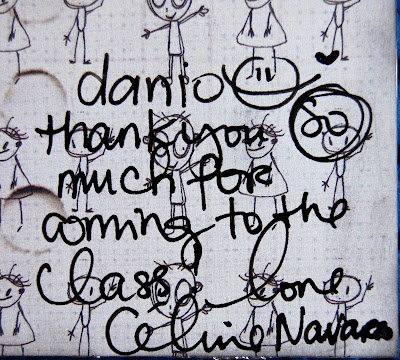 danio
thank you SO
much for
coming to the
class! love
Celine Navarro